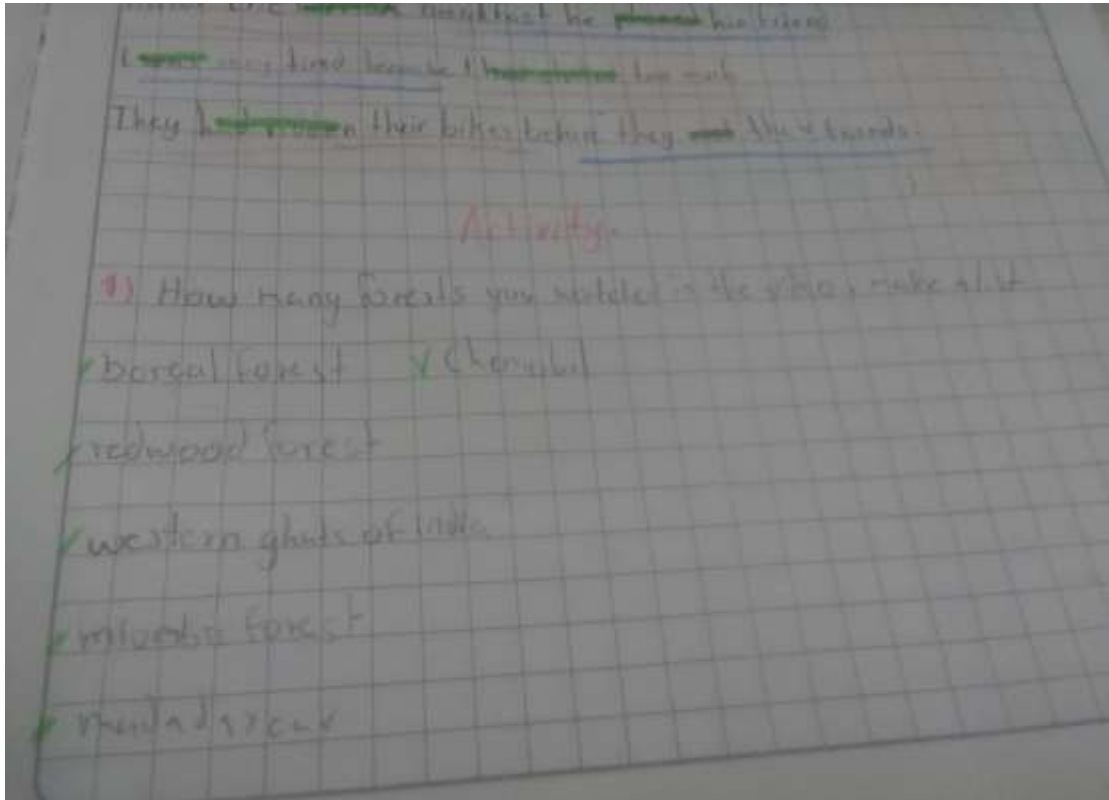 breakfast he his friend
I was tired because I too much
They their bikes before they their friends.
Activity
1) How many forests you watched in the video, make a list
boreal forest Chernobyl
redwood forest
western ghats of India
miombo forest
madagascar